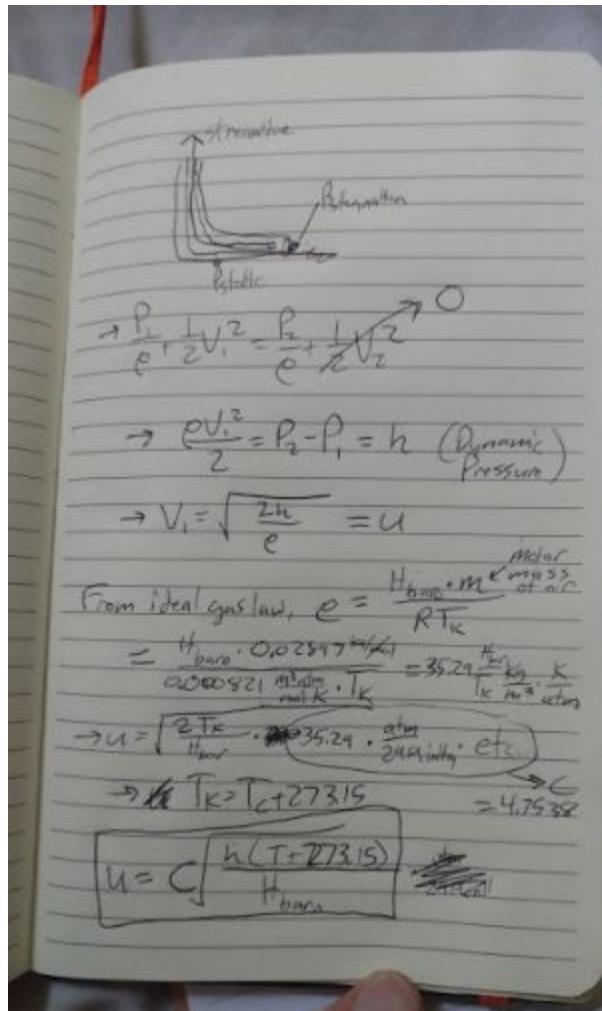 streamline
Pstagnation
Pstatic
→ P₁/ρ + 1/2 V₁² = P₂/ρ + 1/2 V₂² → 0
→ ρV₁²/2 = P₂ - P₁ = h (Dynamic Pressure)
→ V₁ = √(2h/ρ) = u
From ideal gas law, ρ = H_baro · m / RT_K ← molar mass of air
= H_baro · 0.02897 / 0.0000821 m³atm/mol K · T_K = 35.29 H_bar/T_K kg/m³ · K/atm
→ u = √(2 T_K/H_bar · 35.29 · atm/ · etc.) → C
→ T_K = T_C + 273.15 = 4.7538
u = C √(h(T+273.15)/H_baro)